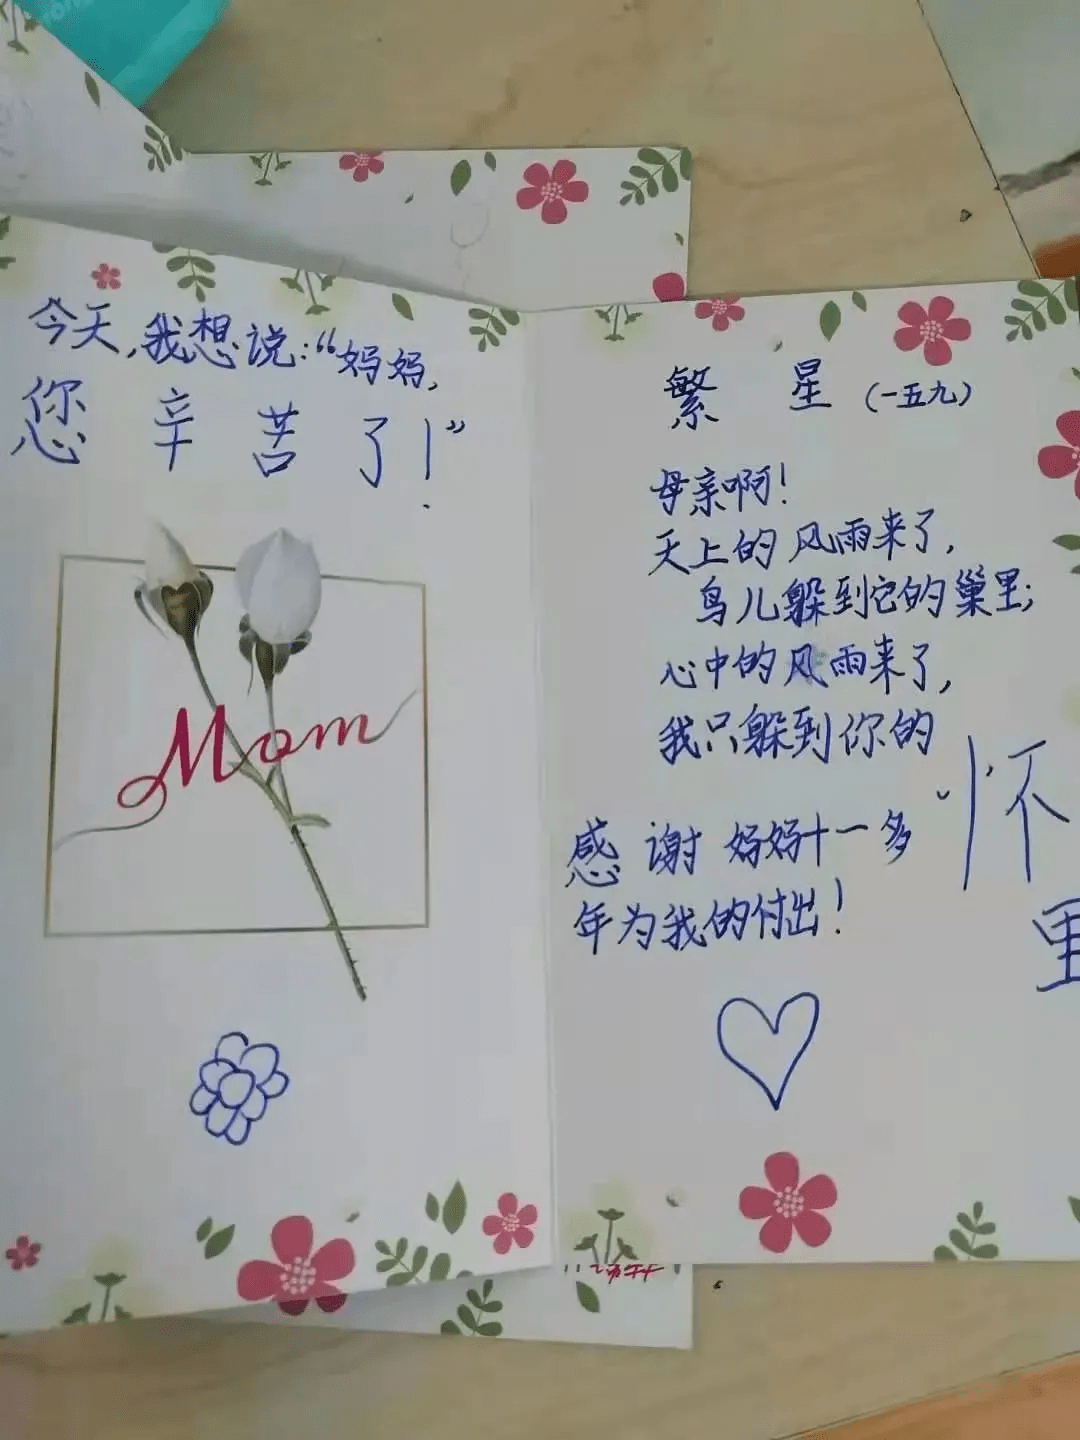 今天,我想说:“妈妈,
您辛苦了!”
Mom
繁星(一五九)
母亲啊!
天上的风雨来了,
鸟儿躲到它的巢里;
心中的风雨来了,
我只躲到你的
怀里
感谢妈妈十一多
年为我的付出!